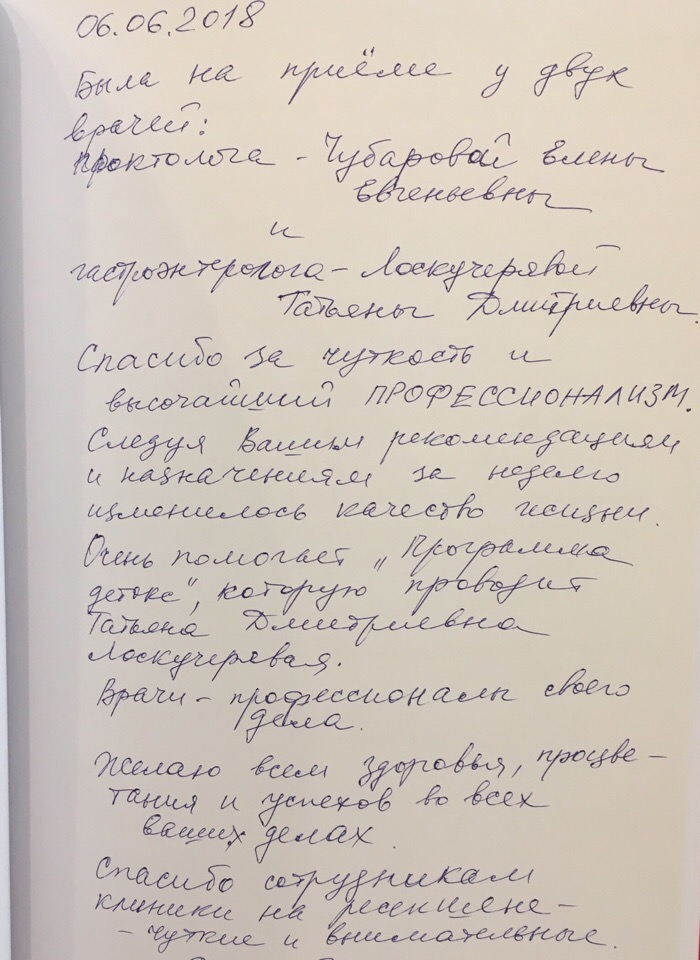 06.06.2018
Была на приёме у двух
врачей:
проктолога - Чубаровой Елены
Евгеньевны
и
гастроэнтеролога - Лоскучерявой
Татьяны Дмитриевны.
Спасибо за чуткость и
высочайший ПРОФЕССИОНАЛИЗМ.
Следуя Вашим рекомендациям
и назначениям за неделю
изменилось качество жизни.
Очень помогает „Программа
детокс", которую проводит
Татьяна Дмитриевна
Лоскучерявая.
Врачи - профессионалы своего
дела.
Желаю всем здоровья, процве-
тания и успехов во всех
ваших делах.
Спасибо сотрудникам
клиники на
- чуткие и внимательные.